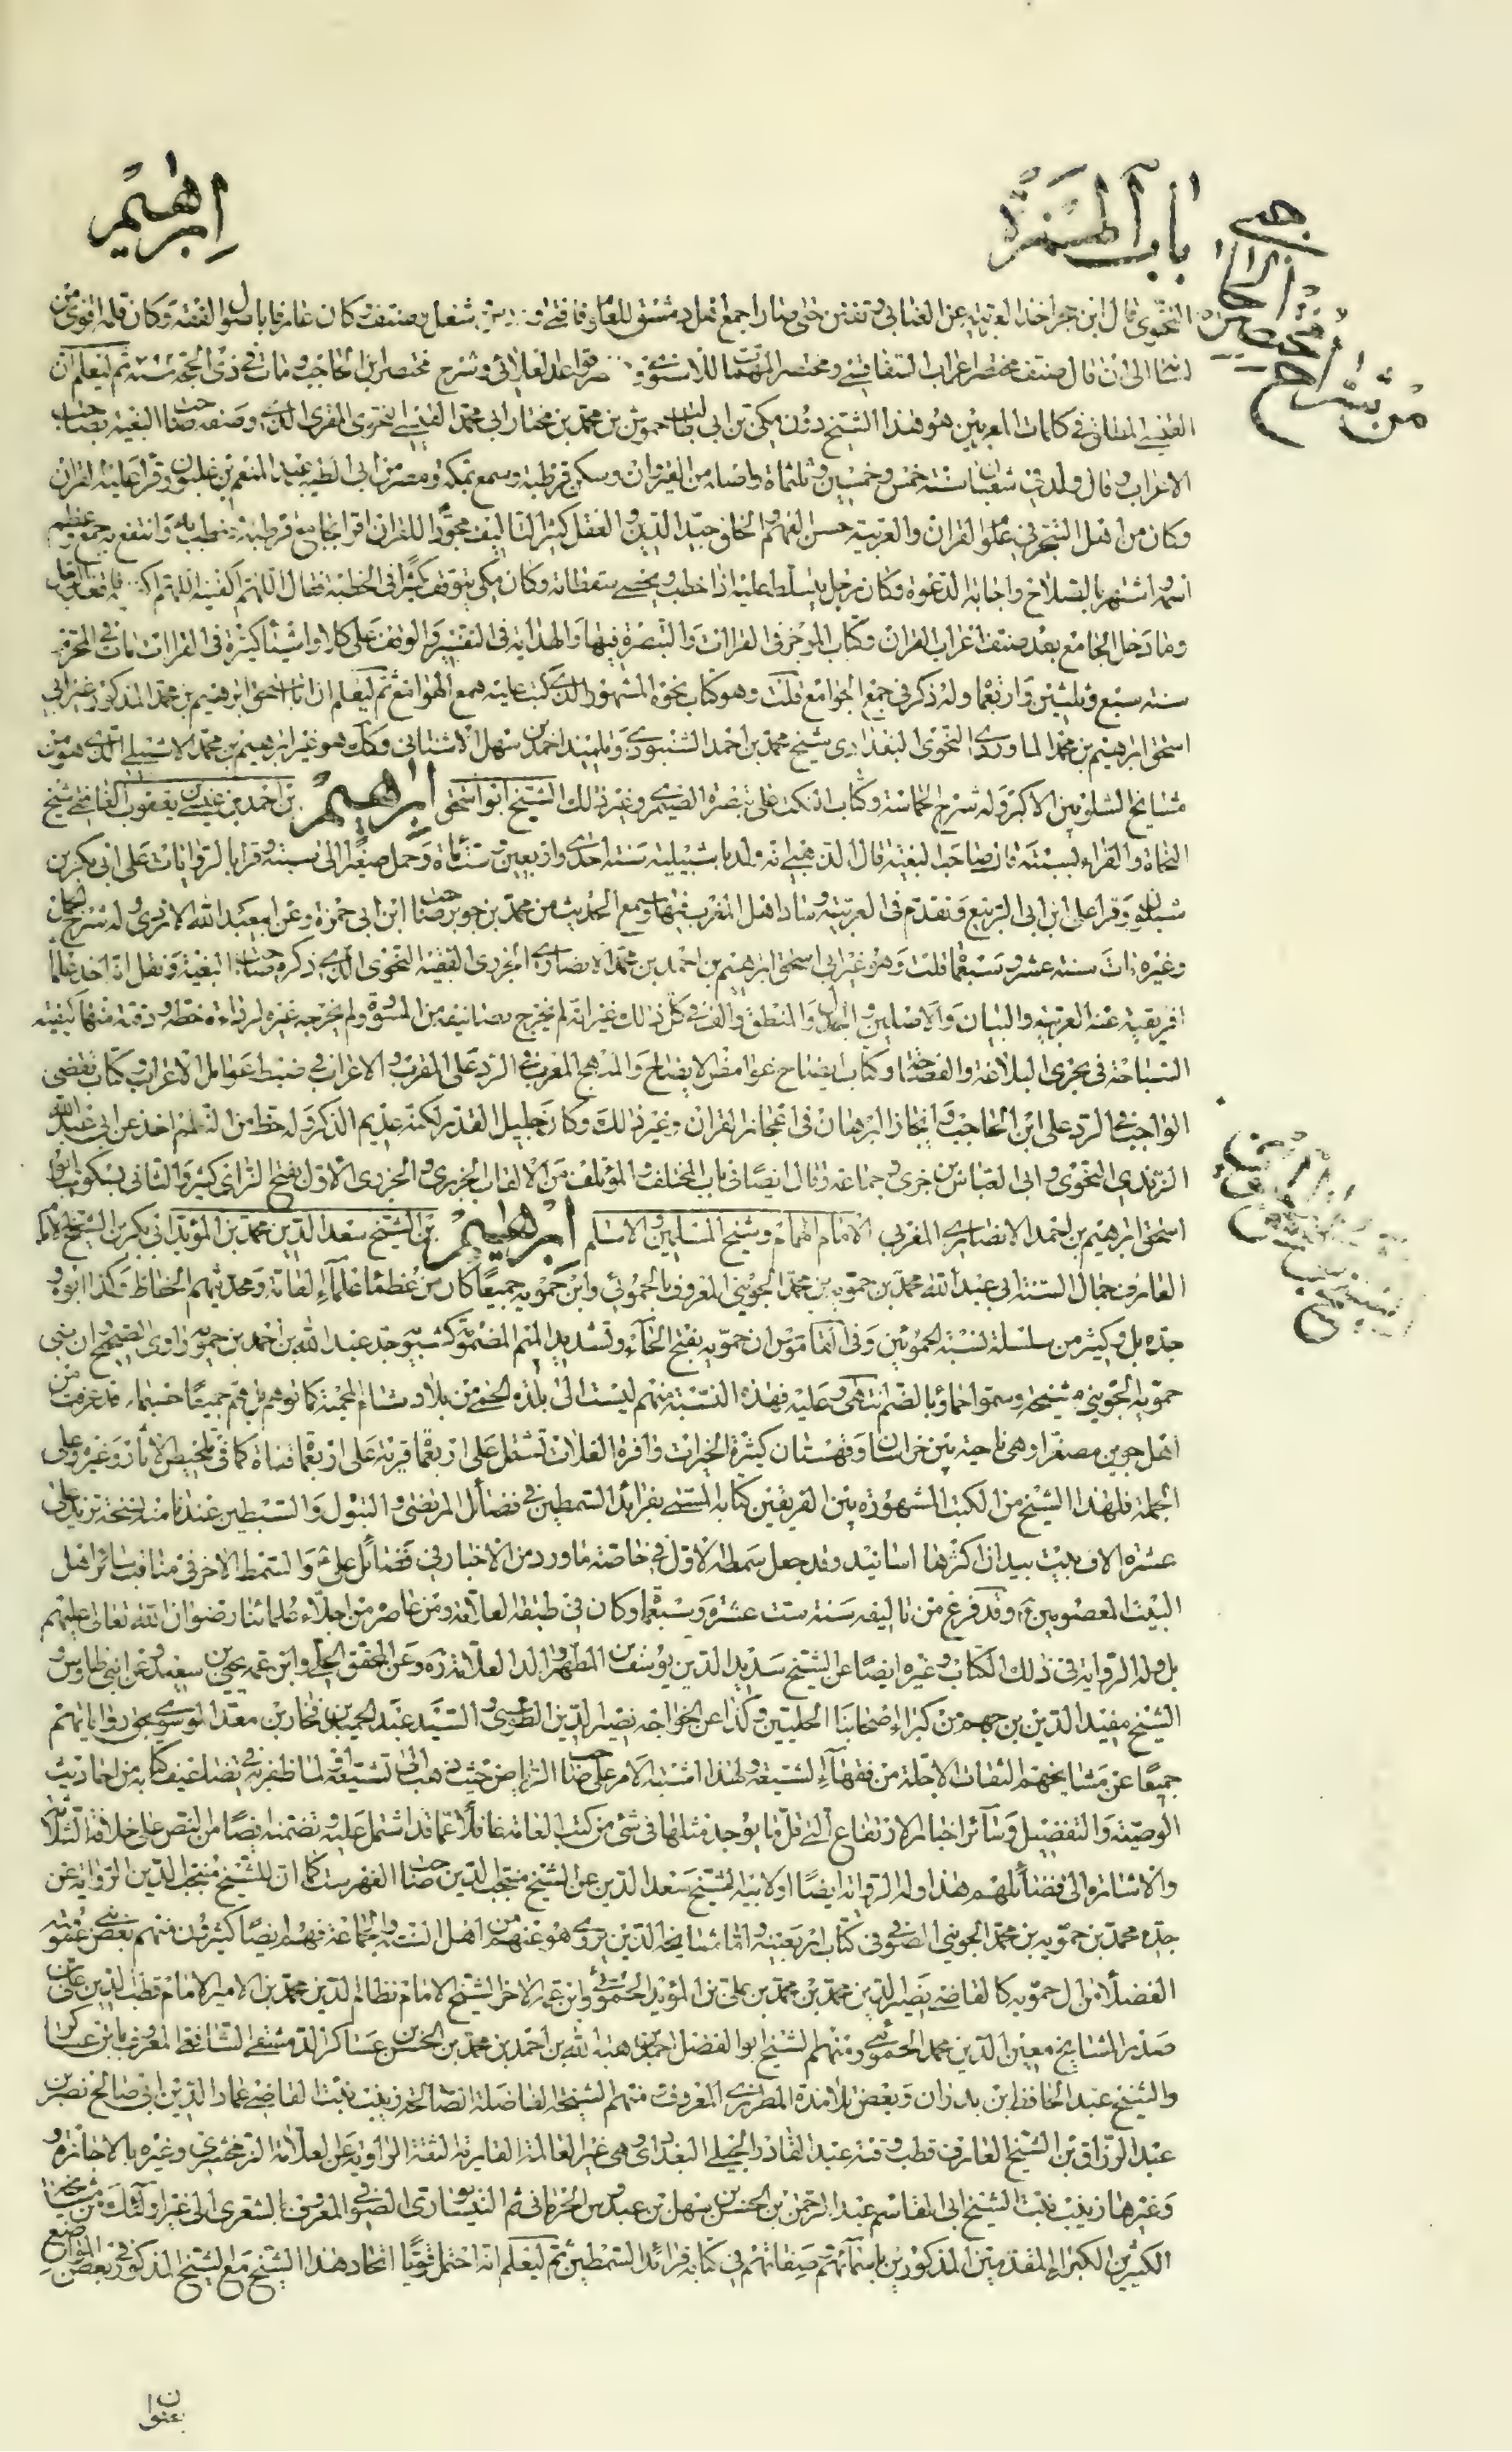 باب الهمزة
ابرهيم
النحوى قال ابن حجر اخذ العربية عن العنابى وتفنن حتى صار اجمع اهل دمشق للعلوم فافتى و شغل وصنف كان عارفا باصول الفقه وكان قلمه اقوى من
لسانه الى ان قال صنف مختصر اعراب السفاقسى ومختصر المهمات للاسنوى و قواعد العلائى وشرح مختصر ابن الحاجب ومات فى ذى الحجة سنة ثم ليعلم ان
القيسى المطلق فى كلمات المعربين هو هذا الشيخ دون مكى بن ابى طالب حموش بن محمد بن مختار ابى محمد القيسى النحوى المقرى الذى وصفه صاحب البغية بصاحب
الاعراب وقال ولد فى شعبان سنة خمس وخمسين وثلثمأة واصله من القيروان وسكن قرطبة وسمع بمكة ومصر من ابى الطيب عبد المنعم بن غلبون وقرا عليه القران
وكان من اهل التبحر فى علوم القران والعربية حسن الفهم والخلق جيد الدين والعقل كثير التاليف مجودا للقران اقرا بجامع قرطبة وخطب به وانتفع به جمع وعظم
اسمه واشتهر بالصلاح واجابة الدعوة وكان رجل يتسلط عليه اذا خطب ويحصى سقطاته وكان مكى يتوقف كثيرا فى الخطبة فقال اللهم اكفنيه اللهم اكفنيه فاقعد الرجل
وما دخل الجامع بعد صنف اعراب القران وكتاب الموجز فى القرائات والتبصرة فيها والهداية فى التفسير والوقف على كلا واشياء كثيرة فى القرائات مات فى المحرم
سنة سبع وثلثين واربعمأة وله ذكر فى جمع الجوامع قلت وهو كتاب نحوه المشهور الذى كتب عليه همع الهوامع ثم ليعلم ان ابا اسحق ابرهيم بن محمد المذكور غير ابى
اسحق ابرهيم بن محمد الماوردى النحوى البغدادى شيخ محمد بن احمد الشنبوذى وتلميذ احمد بن سهل الاشنانى وكذلك هو غير ابرهيم بن محمد الاشبيلى الذى هو من
مشايخ الشلوبين الاكبر وله شرح الحماسة وكتاب النكت على تبصرة الصيمرى وغير ذلك الشيخ ابو اسحق ابرهيم بن احمد بن عيسى بن يعقوب الغافقى شيخ
النحاة والقراء بسبتة قال صاحب البغية قال الذهبى انه ولد باشبيلية سنة احدى واربعين وستمأة وحمل صغيرا الى سبتة وقرا بالروايات على ابى بكر بن
شبلون وقرا على ابن ابى الربيع وتقدم فى العربية وساد اهل المغرب فيها وسمع الحديث من محمد بن جوبر صاحب ابن ابى حمزة وعن ابى عبد الله الازدى وله شرح الجمل
وغيره مات سنة عشر وسبعمأة قلت وهو غير ابى اسحق ابرهيم بن احمد بن محمد الانصارى الجزرى الفقيه النحوى الذى ذكره صاحب البغية ونقل انه اخذ علماء
افريقية عنه العربية والبيان والاصلين والجدل والمنطق والف فى كل ذلك غير انه لم يخرج تصانيفه من المسودة ولم يخرجه غيره لرداءة خطه ودقته منها كيفية
السباحة فى بحرى البلاغة والفصاحة وكتاب ايضاح غوامض الايضاح والمنهج المعرب فى الرد على المقرب والاعراب فى ضبط عوامل الاعراب وكتاب نقضى
الواجب فى الرد على ابن الحاجب وايجاز البرهان فى اعجاز القران وغير ذلك وكان جليل القدر لكنه عديم الذكر وله حظ من النظم اخذ عن ابى عبد الله
الرندى النحوى وابى العباس بن جزى وجماعة وقال ايضا فى باب المختلف والمؤتلف من الالقاب الجزرى والجزرى الاول بفتح الزاى كثير والثانى بسكونها ابو
اسحق ابرهيم بن احمد الانصارى المغربى الامام الهمام وشيخ المسلمين والاسلام ابرهيم بن الشيخ سعد الدين محمد بن المؤيد ابى بكر بن الشيخ
العارف جمال السنة ابى عبد الله محمد بن حمويه بن محمد الجوينى المعروف بالحموئى وابن حمويه جميعا كان من عظماء علماء العامة ومحدثيهم الحفاظ وكذا ابوه و
جده بل وكثير من سلسلة نسبة الحموئين وفى القاموس ان حمويه بفتح الحاء وتشديد الميم المضمومة كشبويه جد عبد الله بن احمد بن حمويه راوى الصحيح وان بنى
حمويه الجوينى مشيخة وسموا حما وبالضم انتهى وعليه فهذه النسبة منهم ليست الى بلدة الحمى من بلاد شام المحمية كما توهم بل هم جميعا حسبما قد عرفت من
اهل جوين مصغرا وهى ناحية بين خراسان وقهستان كثيرة الخيرات وافرة الغلات تشتمل على اربعمأة قرية على اربعمأة قناة كما فى تلخيص الاثار وغيره وعلى
الجملة فلهذا الشيخ من الكتب المشهورة بين الفريقين كتابه المسمى بفرائد السمطين فى فضائل المرتضى والبتول والسبطين عندنا منه نسخة تزيد على
عشرة الاف بيت بيد ان اكثرها اسانيد وقد جعل سمطه الاول فى خاصة ما ورد من الاخبار فى فضائل على ع والسمط الاخر فى مناقب سائر اهل
البيت المعصومين ع وقد فرغ من تاليفه سنة ست عشرة وسبعمأة وكان فى طبقة العلامة ومن عاصره من اجلاء علمائنا رضوان الله تعالى عليهم
بل وله الرواية فى ذلك الكتاب وغيره ايضا عن الشيخ سديد الدين يوسف بن المطهر والد العلامة ره وعن المحقق الحلى وابن عمه يحيى بن سعيد وعن ابنى طاوس و
الشيخ مفيد الدين بن جهم من كبراء اصحابنا الحليين وكذا عن الخواجه نصير الدين الطوسى والسيد عبد الحميد بن فخار بن معد الموسوى بحق رواياتهم
جميعا عن مشايخهم الثقات الاجلة من فقهاء الشيعة ولهذا اشتبه الامر على صاحب الرياض حيث ذهب الى تشيعه ولما ظفر به فى تضاعيف كتابه من احاديث
الوصية والتفضيل وسائر اخبار الارتفاع التى قل ما يوجد مثلها فى شئ من كتب العامة غافلا عما قد اشتمل عليه وتضمنه ايضا من النص على خلافة الثلاثة
والاشارة الى فضائلهم هذا وله الرواية ايضا او لابيه الشيخ سعد الدين عن الشيخ منتجب الدين صاحب الفهرست كما ان للشيخ منتجب الدين الرواية عن
جده محمد بن حمويه بن محمد الجوينى الصوفى فى كتاب اربعينه واما مشايخه الذين يروى هو عنهم من اهل السنة والجماعة فهم ايضا كثيرون منهم بعض بنى عمومته
الفضلاء من ال حمويه كالقاضى نصير الدين محمد بن محمد بن على بن المؤيد الحموئى وابن عمه الاخر الشيخ الامام نظام الدين محمد بن الامير الامام قطب الدين على بن
صدر المشايخ معين الدين محمد الحموئى ومنهم الشيخ ابو الفضل احمد بن هبة الله بن احمد بن محمد بن الحسن بن عساكر الدمشقى الشافعى المعروف بابن عساكر
والشيخ عبد الحافظ بن بدران وبعض تلامذة المطرزى المعروف منهم الشيخة الفاضلة الصالحة زينب بنت القاضى عماد الدين ابى صالح نصر بن
عبد الرزاق بن الشيخ العارف قطب وقته عبد القادر الجيلى البغدادى وهى غير العالمة القارية الثقة الراوية عن العلامة الزمخشرى وغيره بالاجازة و
وغيرها زينب بنت الشيخ ابى القاسم عبد الرحمن بن الحسن بن سهل بن عبدوس الجرجانى ثم النيسابورى الصوفى المعروف بالشعرى الى غير اولئك من مشايخه
الكثيرين الكبراء المقدمين المذكورين باسمائهم وصفاتهم فى كتابه فرائد السمطين ثم ليعلم انه احتمل قويا اتحاد هذا الشيخ مع الشيخ المذكور فى بعض المواضع
بعنوان